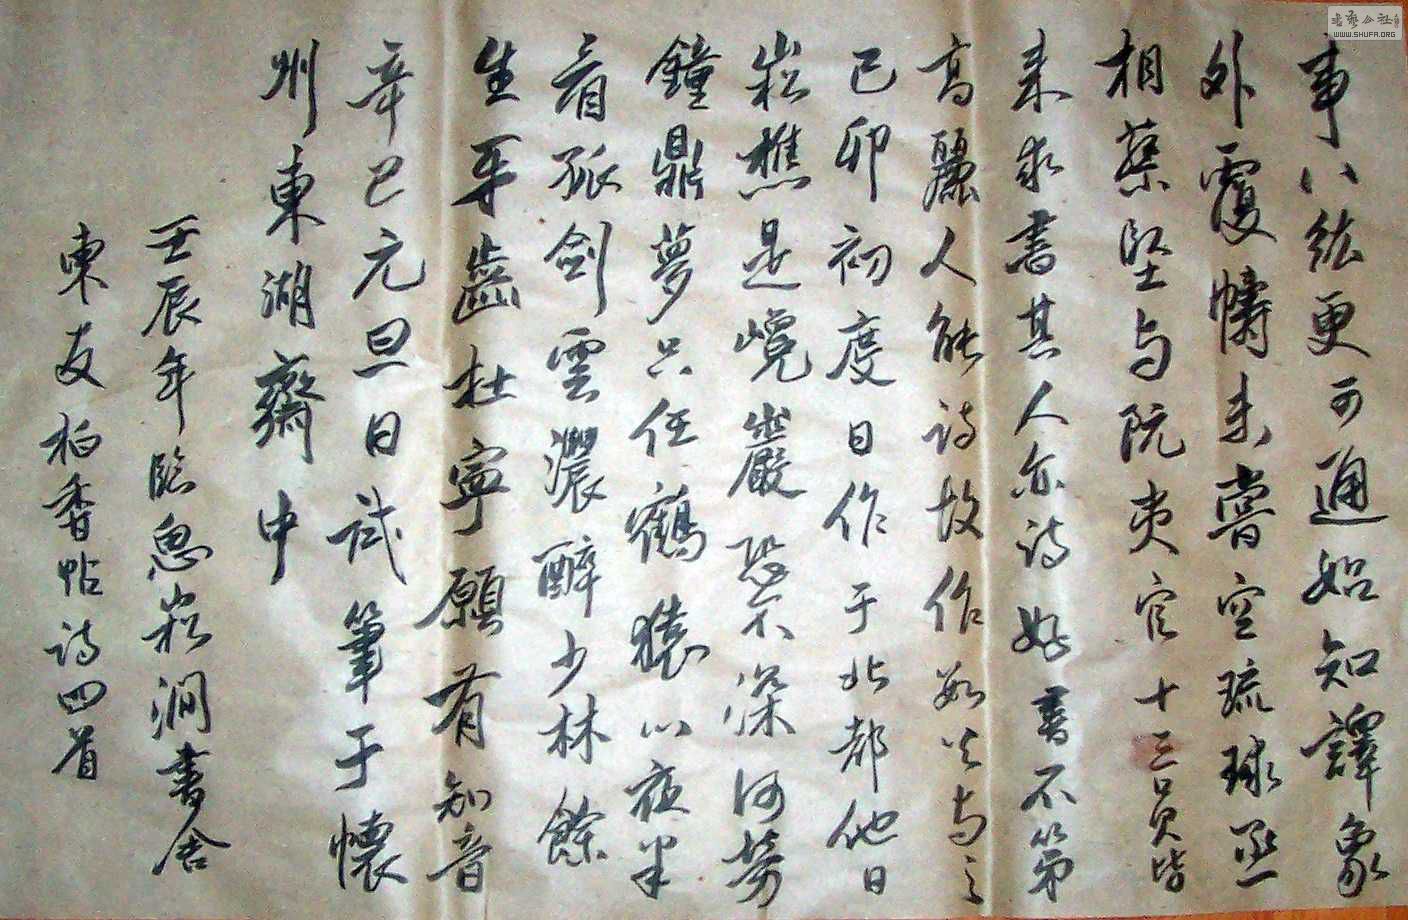 事八紘更可通始知譯象
外覆幬未嘗空琉球丞
相蔡堅与阮夷官十三員皆
来求書其人亦诗好書不第
高麗人能诗故作数以与之
己卯初度日作于北都他日
崧樵是巉巖恐不深何勞
鐘鼎夢只任鶴猿心夜半
看孤劍雲濃醉少林餘
生平齒杜寧願有知音
辛巳元旦日试筆于懷
州東湖齋中
壬辰年临思崧澗書舍
東友柏香帖诗四首
書藝公社
WWW.SHUFA.ORG